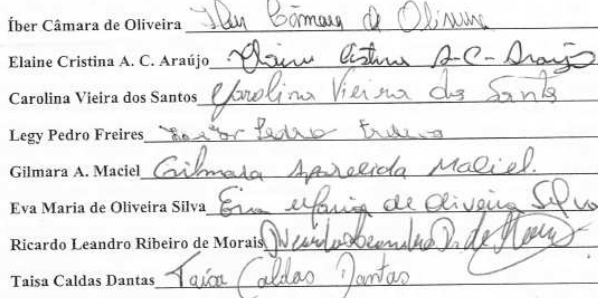 Íber Câmara de Oliveira Iber Câmara de Oliveira
Elaine Cristina A. C. Araújo Elaine Cristina A-C-Araújo
Carolina Vieira dos Santos Carolina Vieira dos Santos
Legy Pedro Freires Pedro
Gilmara A. Maciel Gilmara Aparecida Maciel.
Eva Maria de Oliveira Silva Eva Maria de Oliveira Silva
Ricardo Leandro Ribeiro de Morais Ricardo Leandro R. de Morais
Taisa Caldas Dantas Taísa Caldas Dantas